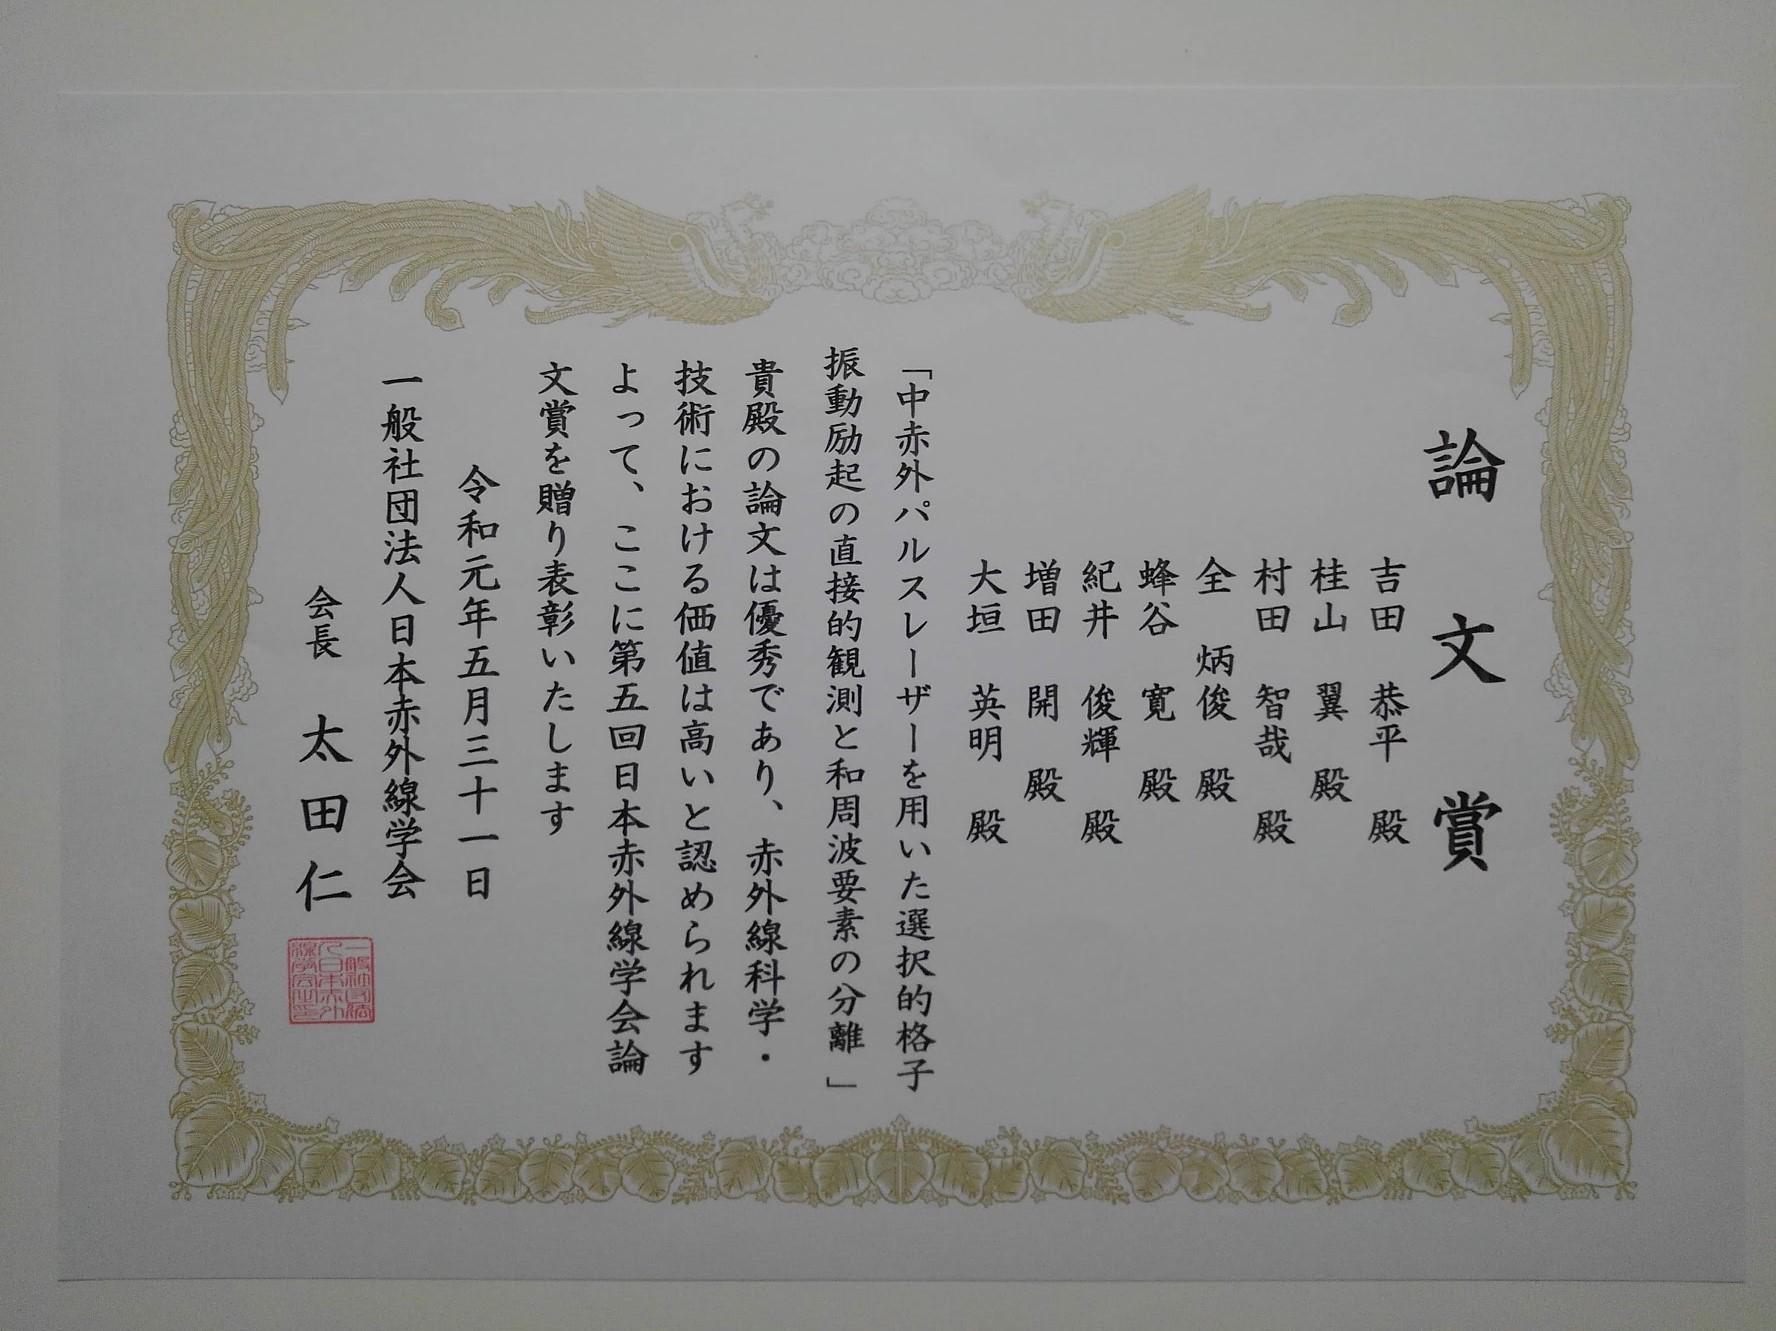 論文賞
吉田 恭平 殿
桂山 翼 殿
村田 智哉 殿
全 炳俊 殿
蜂谷 寛 殿
紀井 俊輝 殿
増田 開 殿
大垣 英明 殿
「中赤外パルスレーザーを用いた選択的格子
振動励起の直接的観測と和周波要素の分離」
貴殿の論文は優秀であり、赤外線科学・
技術における価値は高いと認められます
よって、ここに第五回日本赤外線学会論
文賞を贈り表彰いたします
令和元年五月三十一日
一般社団法人日本赤外線学会
会長 太田仁
一般社団法
人日本赤外
線学会之印